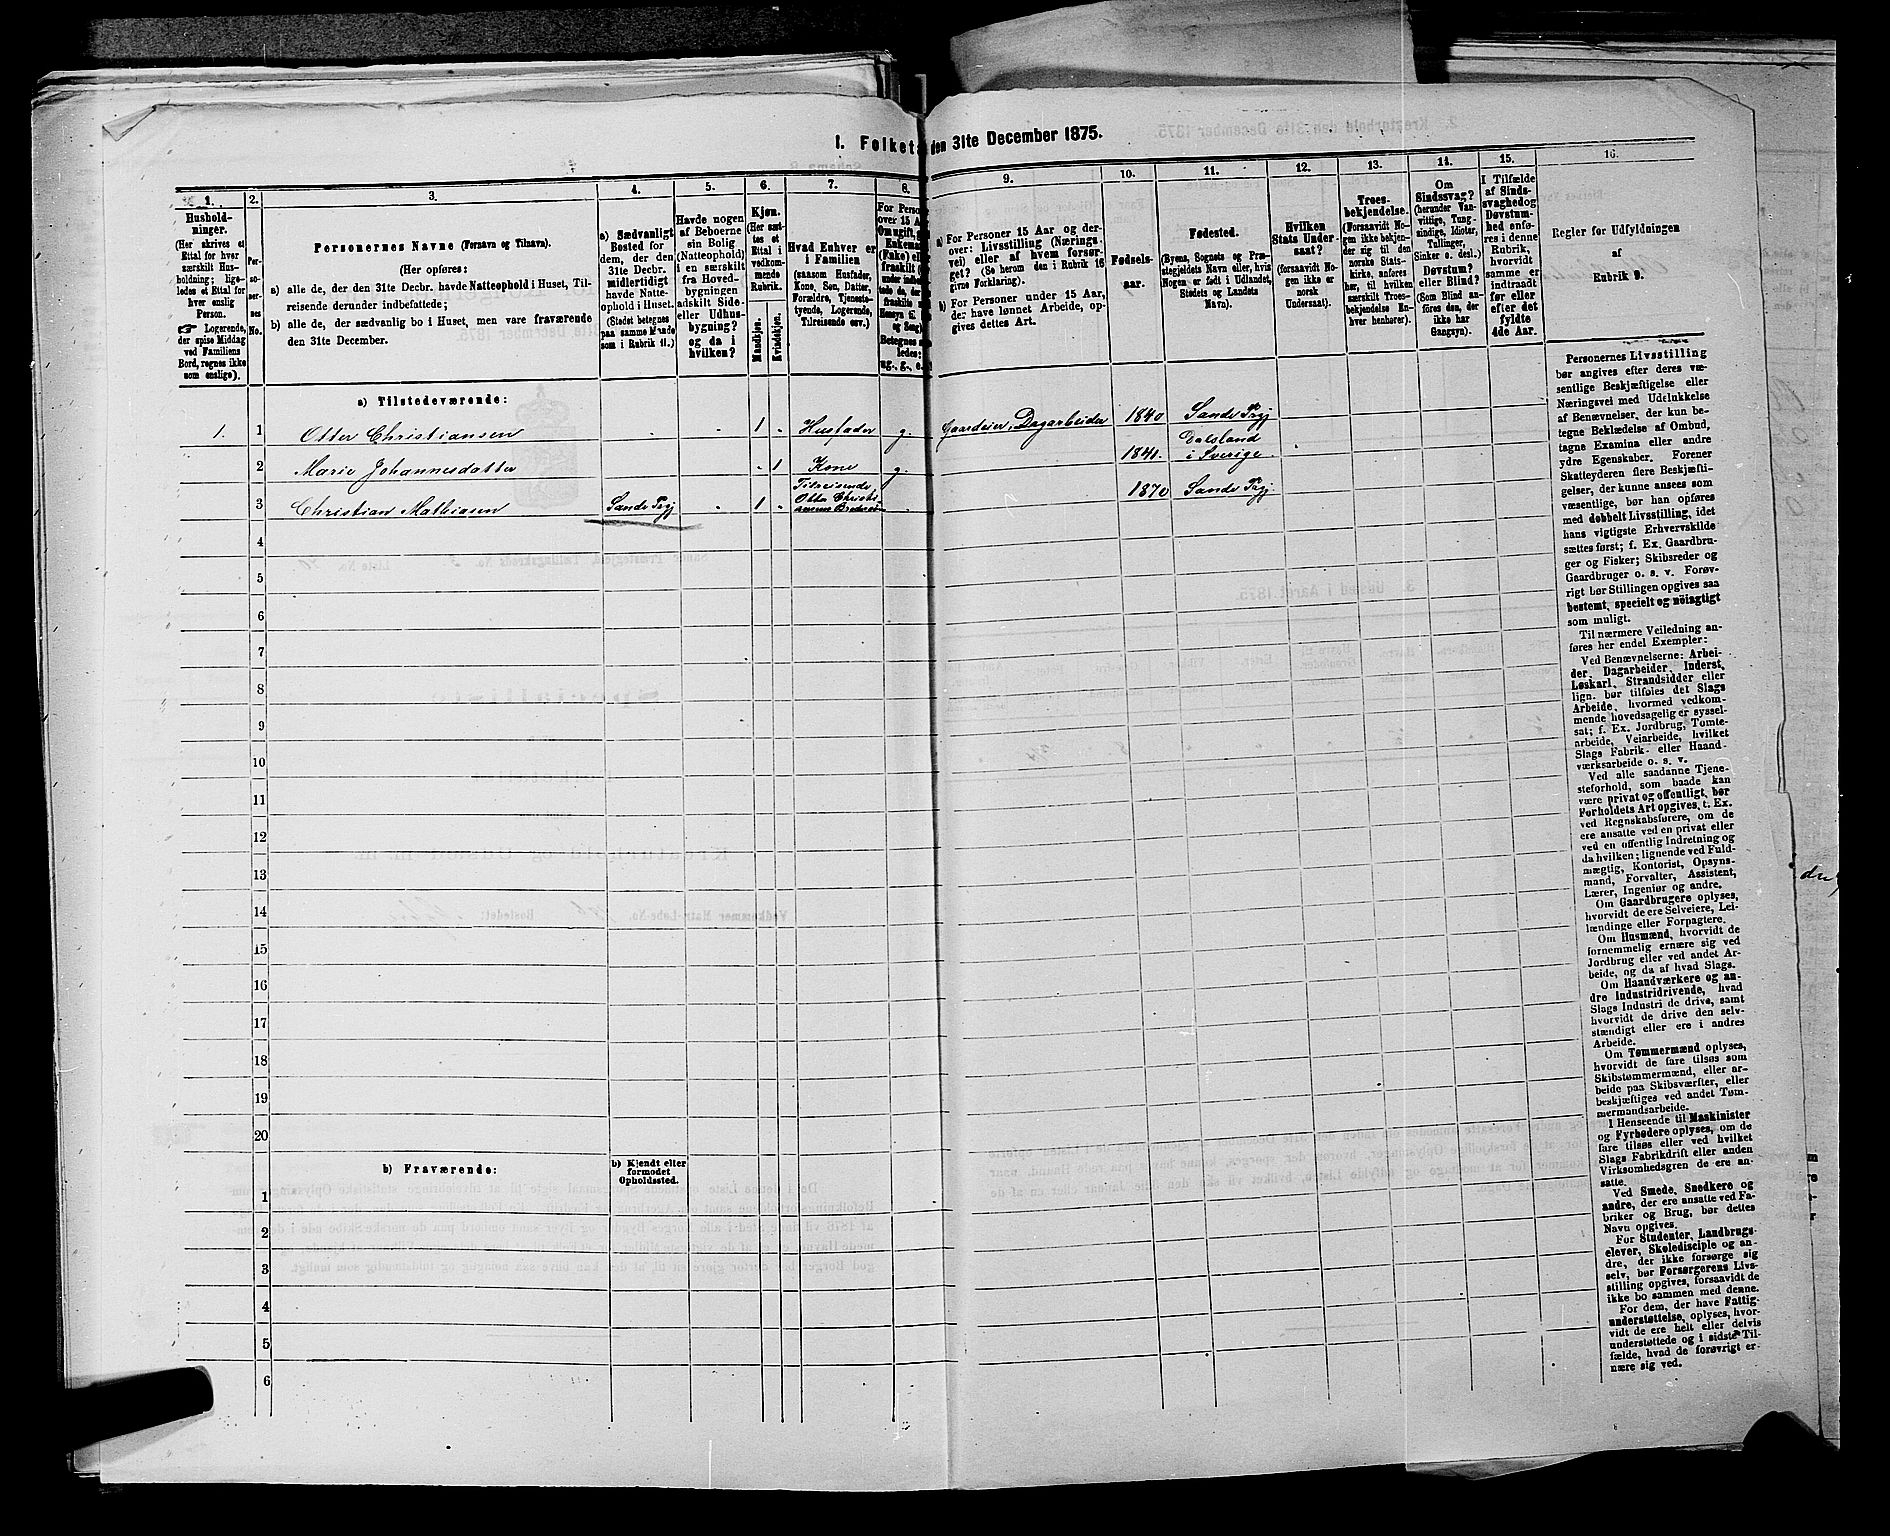 1. Folket
den 31te December 1875.
1.
2.
3.
4.
5.
6.
7.
8.
9.
10.
11.
12.
13.
14.
15.
16.
Hushold-
ninger.
(Her skrives et
Ettal for hver
særskilt Hus-
holdning; lige-
ledes et Ettal for
hver enslig
Person.
☞ Logerende,
der spise Middag
ved Familiens
Bord, regnes ikke
som enslige).
Per-
so-
ner-
nes
No.
Personernes Navne (Fornavn og Tilnavn).
(Her opføres:
a) alle de, der den 31te Decbr. havde Natteophold i Huset, Til-
reisende derunder indbefattede;
b) alle de, der sædvanlig bo i Huset, men vare fraværende
den 31te December.
a) Sædvanligt
Bosted for
dem, der den
31te Decbr.
midlertidigt
havde Natte-
ophold i Huset.
(Stedet betegnes
paa samme Maade
som i Rubrik 11.)
Havde nogen
af Beboerne
sin Bolig
(Natteophold)
i en særskilt
fra Hoved-
bygningen
adskilt Side-
eller Udhus-
bygning?
og da i
hvilken?
Kjøn.
(Her sæt-
tes et
Ettal i
vedkom-
mende
Rubrik.
Mandkjøn.
Kvindekjøn.
Hvad Enhver er
i Familien
(saasom Husfader,
Kone, Søn, Datter,
Forældre, Tjeneste-
tyende, Logerende,
Tilreisende osv.)
For Perso
over 15 A
Om ugift, g
Enkema
(Enke) el
fraskilt
Betegnes
ledes:
ug., g., e.
a) For Personer 15 Aar og der-
over: Livsstilling (Nærings-
vei) eller af hvem forsør-
get? (Se herom den i Rubrik 16
givne Forklaring).
b) For Personer under 15 Aar,
der have lønnet Arbeide, op-
gives dettes Art.
Fødsels-
aar.
Fødested.
(Byens, Sognets og Præ-
stegjeldets Navn eller, hvis
Nogen er født i Udlandet,
Stedets og Landets
Navn).
Hvilken
Stats Under-
saat?
(forsaavidt No-
gen ikke er
norsk
Undersaat).
Troes-
bekjendelse.
(Forsaavidt No-
gen ikke bekjen-
der sig til den
norske Stats-
kirke, anføres
her, til hvilken
særskilt Troes-
bekjendelse En-
hver henhører).
Om
Sindssvag?
(herunder Van-
vittige, Tung-
sindige, Idioter,
Tullinger,
Sinker o. desl.)
Døvstum?
eller Blind?
(Som Blind an-
føres den, der
ikke har
Gangsyn).
I Tilfælde
af Sinds-
svaghed og
Døvstum-
hed anfø-
res i denne
Rubrik,
hvorvidt
samme er
indtraadt
før eller
efter det
fyldte
4de Aar.
Regler for Udfyldningen
af
Rubrik 9.
a) Tilstedeværende:
1. 1 Otter Christiansen 1 Husfader g. Gaardeier, Dagarbeider 1840 Sande Prgj
2 Marie Johannesdatter 1 Kone g. 1841. Dalsland
i Sverige
3 Christian Mathiasen Sande Prgj 1 Tilreisende
Otter Christi-
ansens 1870 Sande Prgj.
4
5
6
7
8
9
10
11
12
13
14
15
16
17
18
19
20
b) Fraværende:
b) Kjendt eller
formodet
Opholdssted.
1
2
3
4
5
6
Personernes Livsstilling
bør angives efter deres væ-
sentlige Beskjæftigelse eller
Næringsvei med Udelukkelse
af Benævnelser, der kun be-
tegne Beklædelse af Ombud,
tagne Examina eller andre
ydre Egenskaber. Forener
Skatteyderen flere Beskjæfti-
gelser, der kunne ansees som
væsentlige, bør han opføres
med dobbelt Livsstilling, idet
hans vigtigste Erhvervskilde
sættes først; f. Ex. Gaardbru-
ger og Fisker; Skibsreder og
Gaardbruger o. s. v. Forøv-
rigt bør Stillingen opgives saa
bestemt, specielt og nöiagtigt
som muligt.
Til nærmere Veiledning an-
føres her endel Exempler:
Ved Benævnelserne: Arbei-
der, Dagarbeider, Inderst,
Løskarl, Strandsidder eller
lign. bør tilføies det Slags
Arbeide, hvormed vedkom-
mende hovedsagelig er syssel-
sat; f. Ex. Jordbrug, Tomte-
arbeide, Veiarbeide, hvilket
Slags Fabrik- eller Haand-
værksarbeide o. s. v.
Ved alle saadanne Tjene-
steforhold, som baade kan
være privat og offentligt, bør
Forholdets Art opgives, t. Ex.
ved Regnskabsførere, om de
ere ansatte ved en privat eller
ved en offentlig Indretning og
da hvilken; lignende ved Fuld-
mægtig, Kontorist, Opsyns-
mand, Forvalter, Assistent,
Lærer, Ingeniør og andre.
Om Gaardbrugere oplyses,
hvorvidt de ere Selveiere, Lei-
lændinge eller Forpagtere.
Om Husmænd, hvorvidt de
fornemmelig ernære sig ved
Jordbrug eller ved andet Ar-
beide, og da af hvad Slags.
Om Haandværkere og an-
dre Industridrivende, hvad
Slags Industri de drive, samt
hvorvidt de drive den selv-
stændigt eller ere i andres
Arbeide.
Om Tømmermænd oplyses,
hvorvidt de fare tilsøs som
Skibstømmermænd, eller ar-
beide paa Skibsværfter, eller
beskjæftiges ved andet Tøm-
mermandsarbeide.
I Henseende til Maskinister
og Fyrbødere oplyses, om de
fare tilsøs eller ved hvilket
Slags Fabrikdrift eller anden
Virksomhedsgren de ere an-
satte.
Ved Smede, Snedkere og
andre, der ere ansatte ved Fa-
briker og Brug, bør dettes
Navn opgives.
For Studenter, Landbrugs-
elever, Skoledisciple og an-
dre, der ikke forsørge sig
selv, bør Forsørgerens Livs-
stilling opgives, forsaavidt de
ikke bo sammen med denne.
For dem, der have Fattig-
understøttelse, oplyses, hvor-
vidt de ere helt eller delvis
understøttede og i sidste Til-
fælde, hvad de forøvrigt er-
nære sig ved.